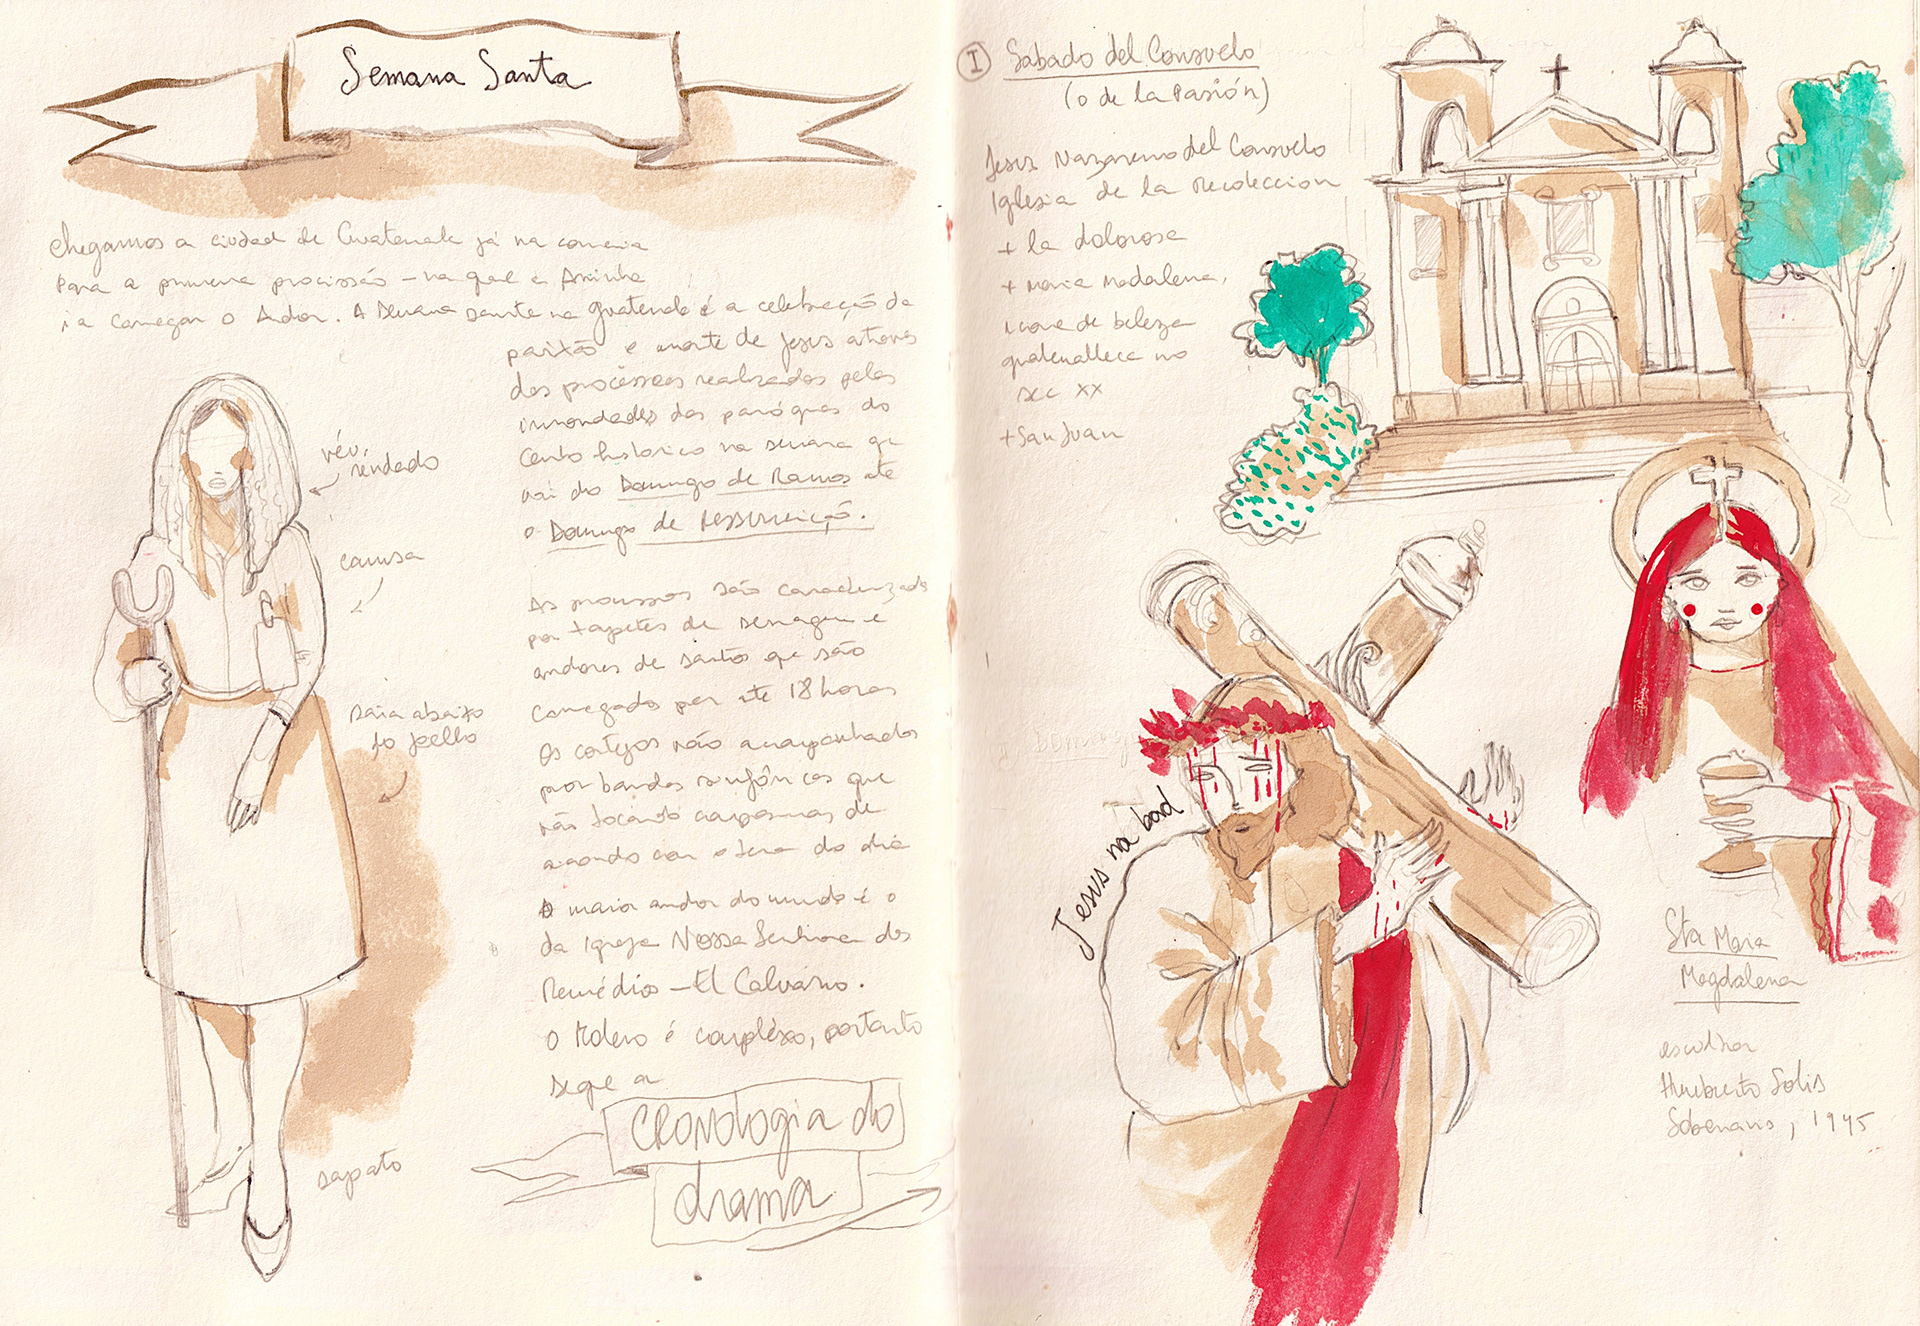 Semana Santa
chegamos a ciudad de Guatemala já na correria
para a primeira procissão – na qual a Aninha
ia carregar o Andor. A Semana santa na guatemala é a celebração da
paixão e morte de Jesus através
das procissões realizadas pelas
irmandades das paróquias do
centro historico na semana que
vai do Domingo de Ramos até
o Domingo de Ressurreição.
véu
rendado
camisa
saia abaixo
do joelho
sapato
As procissões são caracterizadas
por tapetes de serragem e
andores de santos que são
carregados por até 18 horas
Os cortejos são acompanhados
por bandas sinfônicas que
vão tocando
acordo com o tema do dia
A maior andor do mundo é o
da Igreja Nossa Senhora dos
Remédios – El Calvário.
O roteiro é complexo, portanto
segue a
CRONOlogia do
drama
I Sábado del Consuelo
(o de la Pasión)
Jesus Nazareno del Consuelo
Iglesia de la Recoleccion
+ la dolorosa
+ Maria Madalena,
icone de beleza
guatemalteca no
sec XX
+ San Juan
Jesus na bad
Sta Maria
Magdalena
escultor
Humberto Solis
Soberanis, 1945